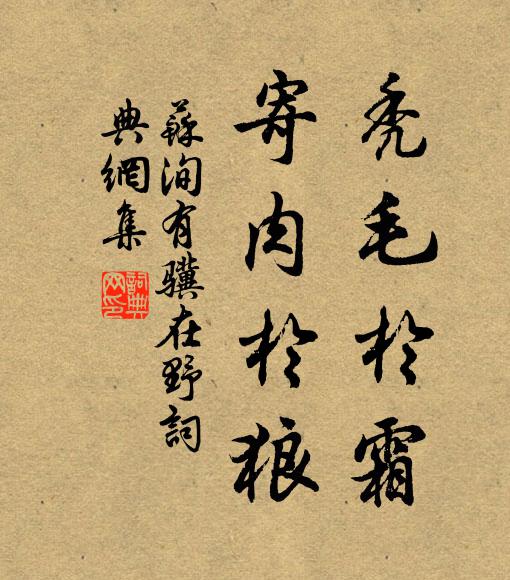 秃毛於霜
寄肉於狼
蘇洵有驥在野詞
典網集
詞典
网印